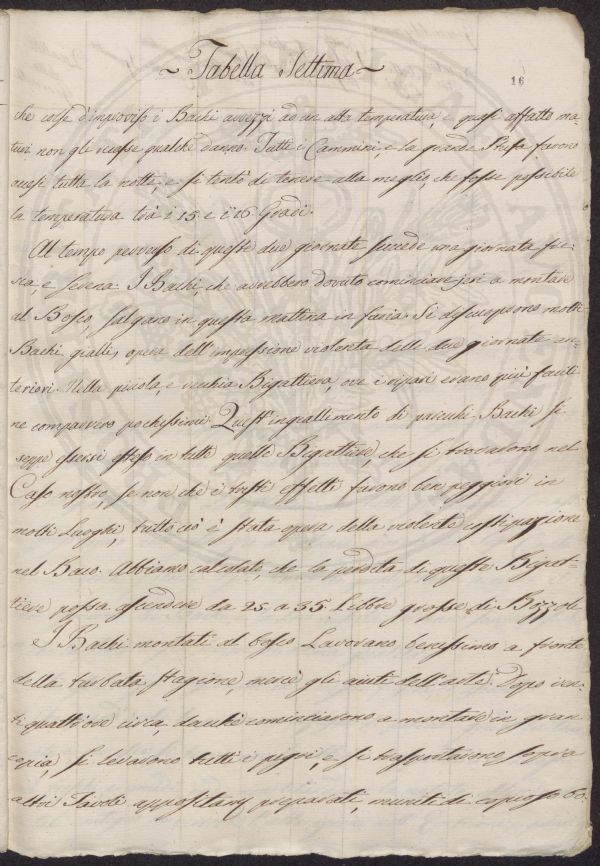 ~ Tabella Settima ~
16
che colse d'improviso i Bachi avvezzi ad un alta temperatura, e quasi affatto ma-
turi non gli recasse qualche danno. Tutti i Cammini, e la grande Stufa furono
accesi tutta la notte, e si tentò di tenere alla meglio, che fosse possibile
la temperatura trà i 15 e i 16 Gradi.
Al tempo perverso di queste due giornate succede una giornata fre-
sca, e serena. I Bachi, che avrebbero dovuto cominciare jeri a montare
al Bosco, salgano in questa mattina in furia. Si discuoprono molti
Bachi gialli, opera dell'impressione violenta delle due giornate an-
teriori. Nella picola, e vechia Bigattiera, ove i ripari erano più facili
ne comparvero pochessimi. Quest'ingiallimento di parechi Bachi si
seppe essersi esteso in tutte quelle Bigattiere, che si trovavano nel
Caso nostro, se non che i tristi effetti furono ben peggiori in
molti Luoghi, tutto ciò è stata opera della violente costipazione
nel Baco. Abbiamo calcolato, che la perdita di queste Bigat-
tiere possa ascendere da 25 a 35 Libbre grosse di Bozzoli
I Bachi montati al bosco Lavorano benissimo a fronte
della turbata stagione, mercè gli aiuti dell'arte. Dopo ven-
ti quattr'ore circa, dacchè cominciarono a montare in gran
copia, si levarono tutti i pigri, e si trasportarono sopra
altri Tavoli appositam.e preparati, muniti di copioso bo-